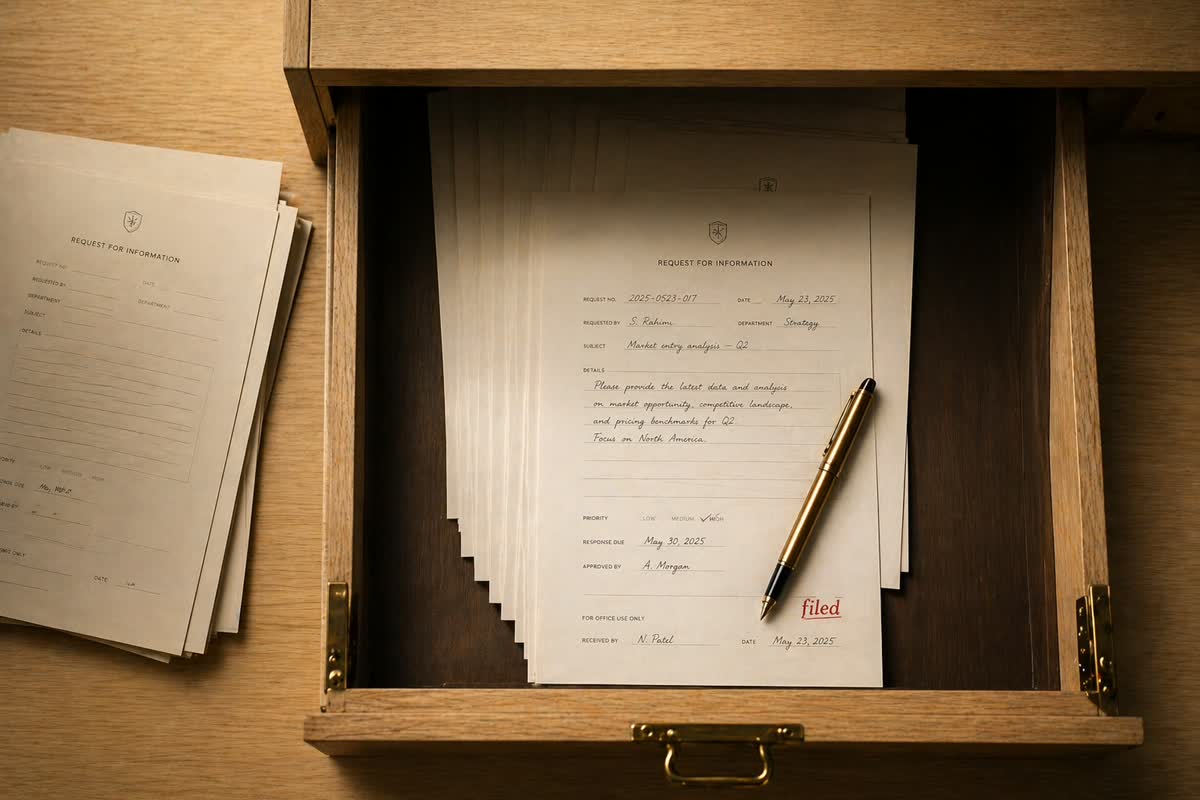 REQUEST FOR INFORMATION
REQUEST NO.
DATE
REQUESTED BY
DEPARTMENT
DEPARTMENT
SUBJECT
DETAILS
LOW MEDIUM HIGH
May
DATE
REQUEST FOR INFORMATION
REQUEST NO. 2025-0523-017 DATE May 23, 2025
REQUESTED BY S. Rahimi DEPARTMENT Strategy
SUBJECT Market entry analysis — Q2
DETAILS
Please provide the latest data and analysis
on market opportunity, competitive landscape,
and pricing benchmarks for Q2.
Focus on North America.
PRIORITY LOW MEDIUM ✓HIGH
RESPONSE DUE May 30, 2025
APPROVED BY A. Morgan
filed
FOR OFFICE USE ONLY
RECEIVED BY N. Patel DATE May 23, 2025